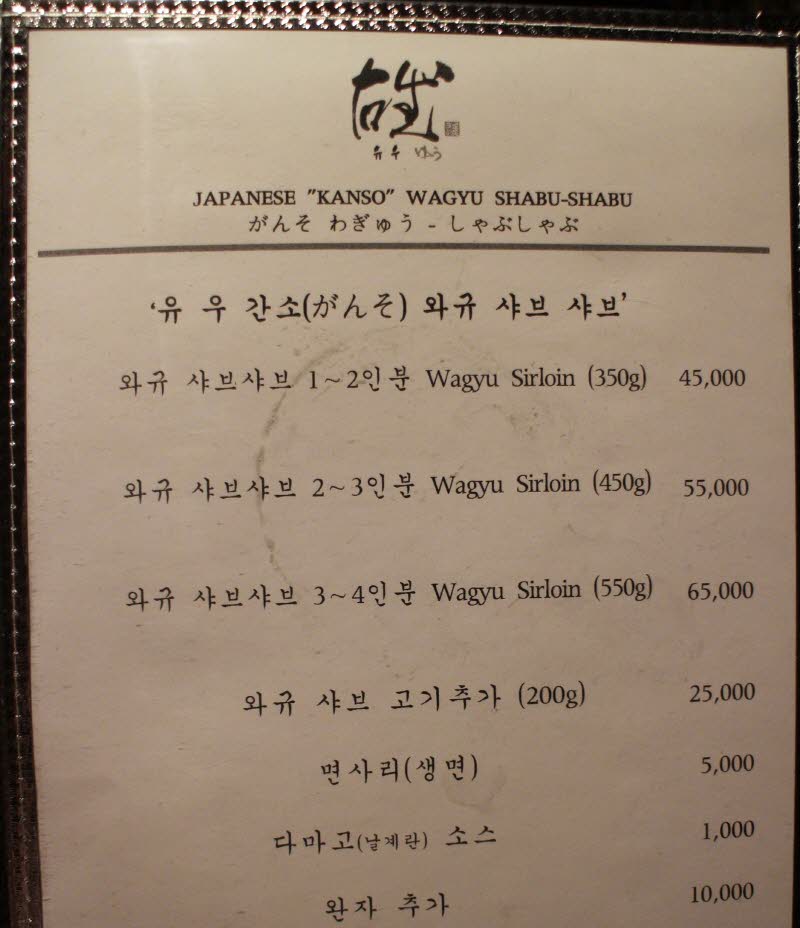 유우 ゆう
JAPANESE "KANSO" WAGYU SHABU-SHABU
がんそ わぎゅう - しゃぶしゃぶ
'유 우 간소(がんそ) 와규 샤브 샤브'
와규 샤브샤브 1~2인분 Wagyu Sirloin (350g) 45,000
와규 샤브샤브 2~3인분 Wagyu Sirloin (450g) 55,000
와규 샤브샤브 3~4인분 Wagyu Sirloin (550g) 65,000
와규 샤브 고기추가 (200g) 25,000
면사리(생면) 5,000
다마고(날계란) 소스 1,000
완자 추가 10,000